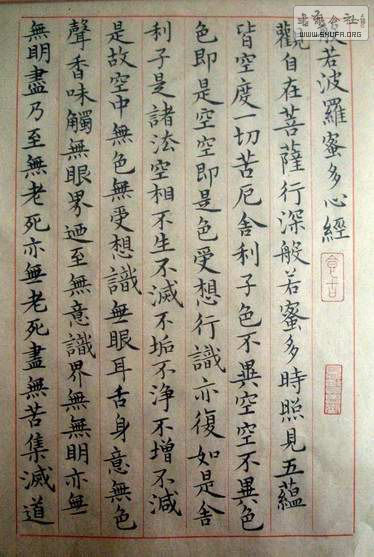 書法公社
www.SHUFA.ORG
般若波羅蜜多心經
觀自在菩薩行深般若蜜多時照見五蘊
皆空度一切苦厄舍利子色不異空空不異色
色即是空空即是色受想行識亦復如是舍
利子是諸法空相不生不滅不垢不淨不增不減
是故空中無色無受想識無眼耳舌身意無色
聲香味觸無眼界迺至無意識界無無明亦無
無明盡乃至無老死亦無老死盡無苦集滅道